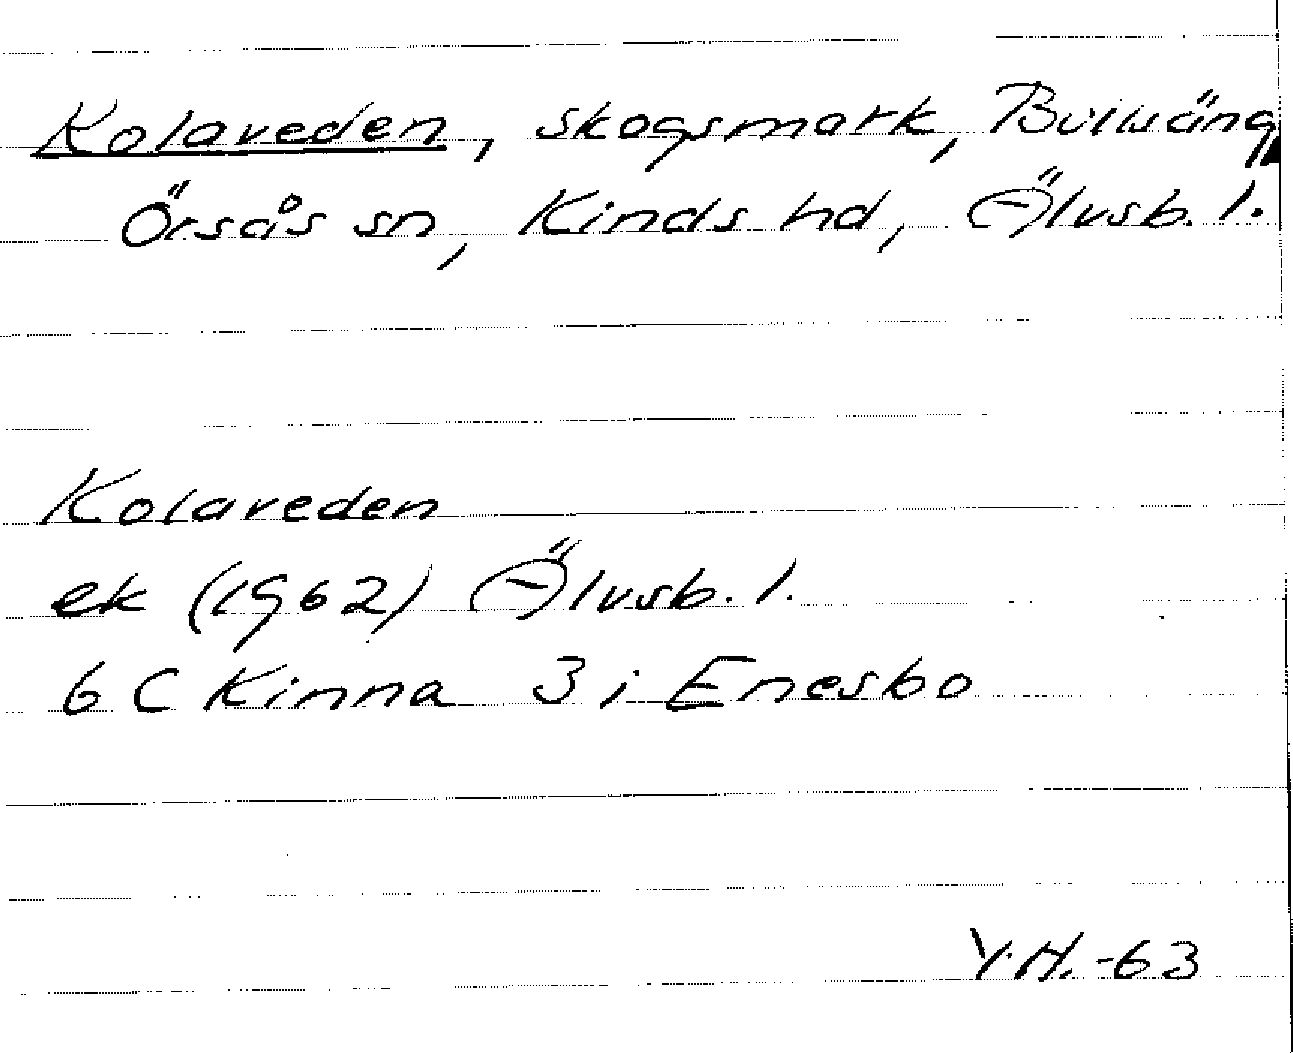 Kolaveden, skogsmark,
Örsås sn, Kinds hd, Älvsb. l.
Kolaveden
ek (1962) Älvsb. l.
6 C Kinna 3 i Enesbo
Y.H. -63